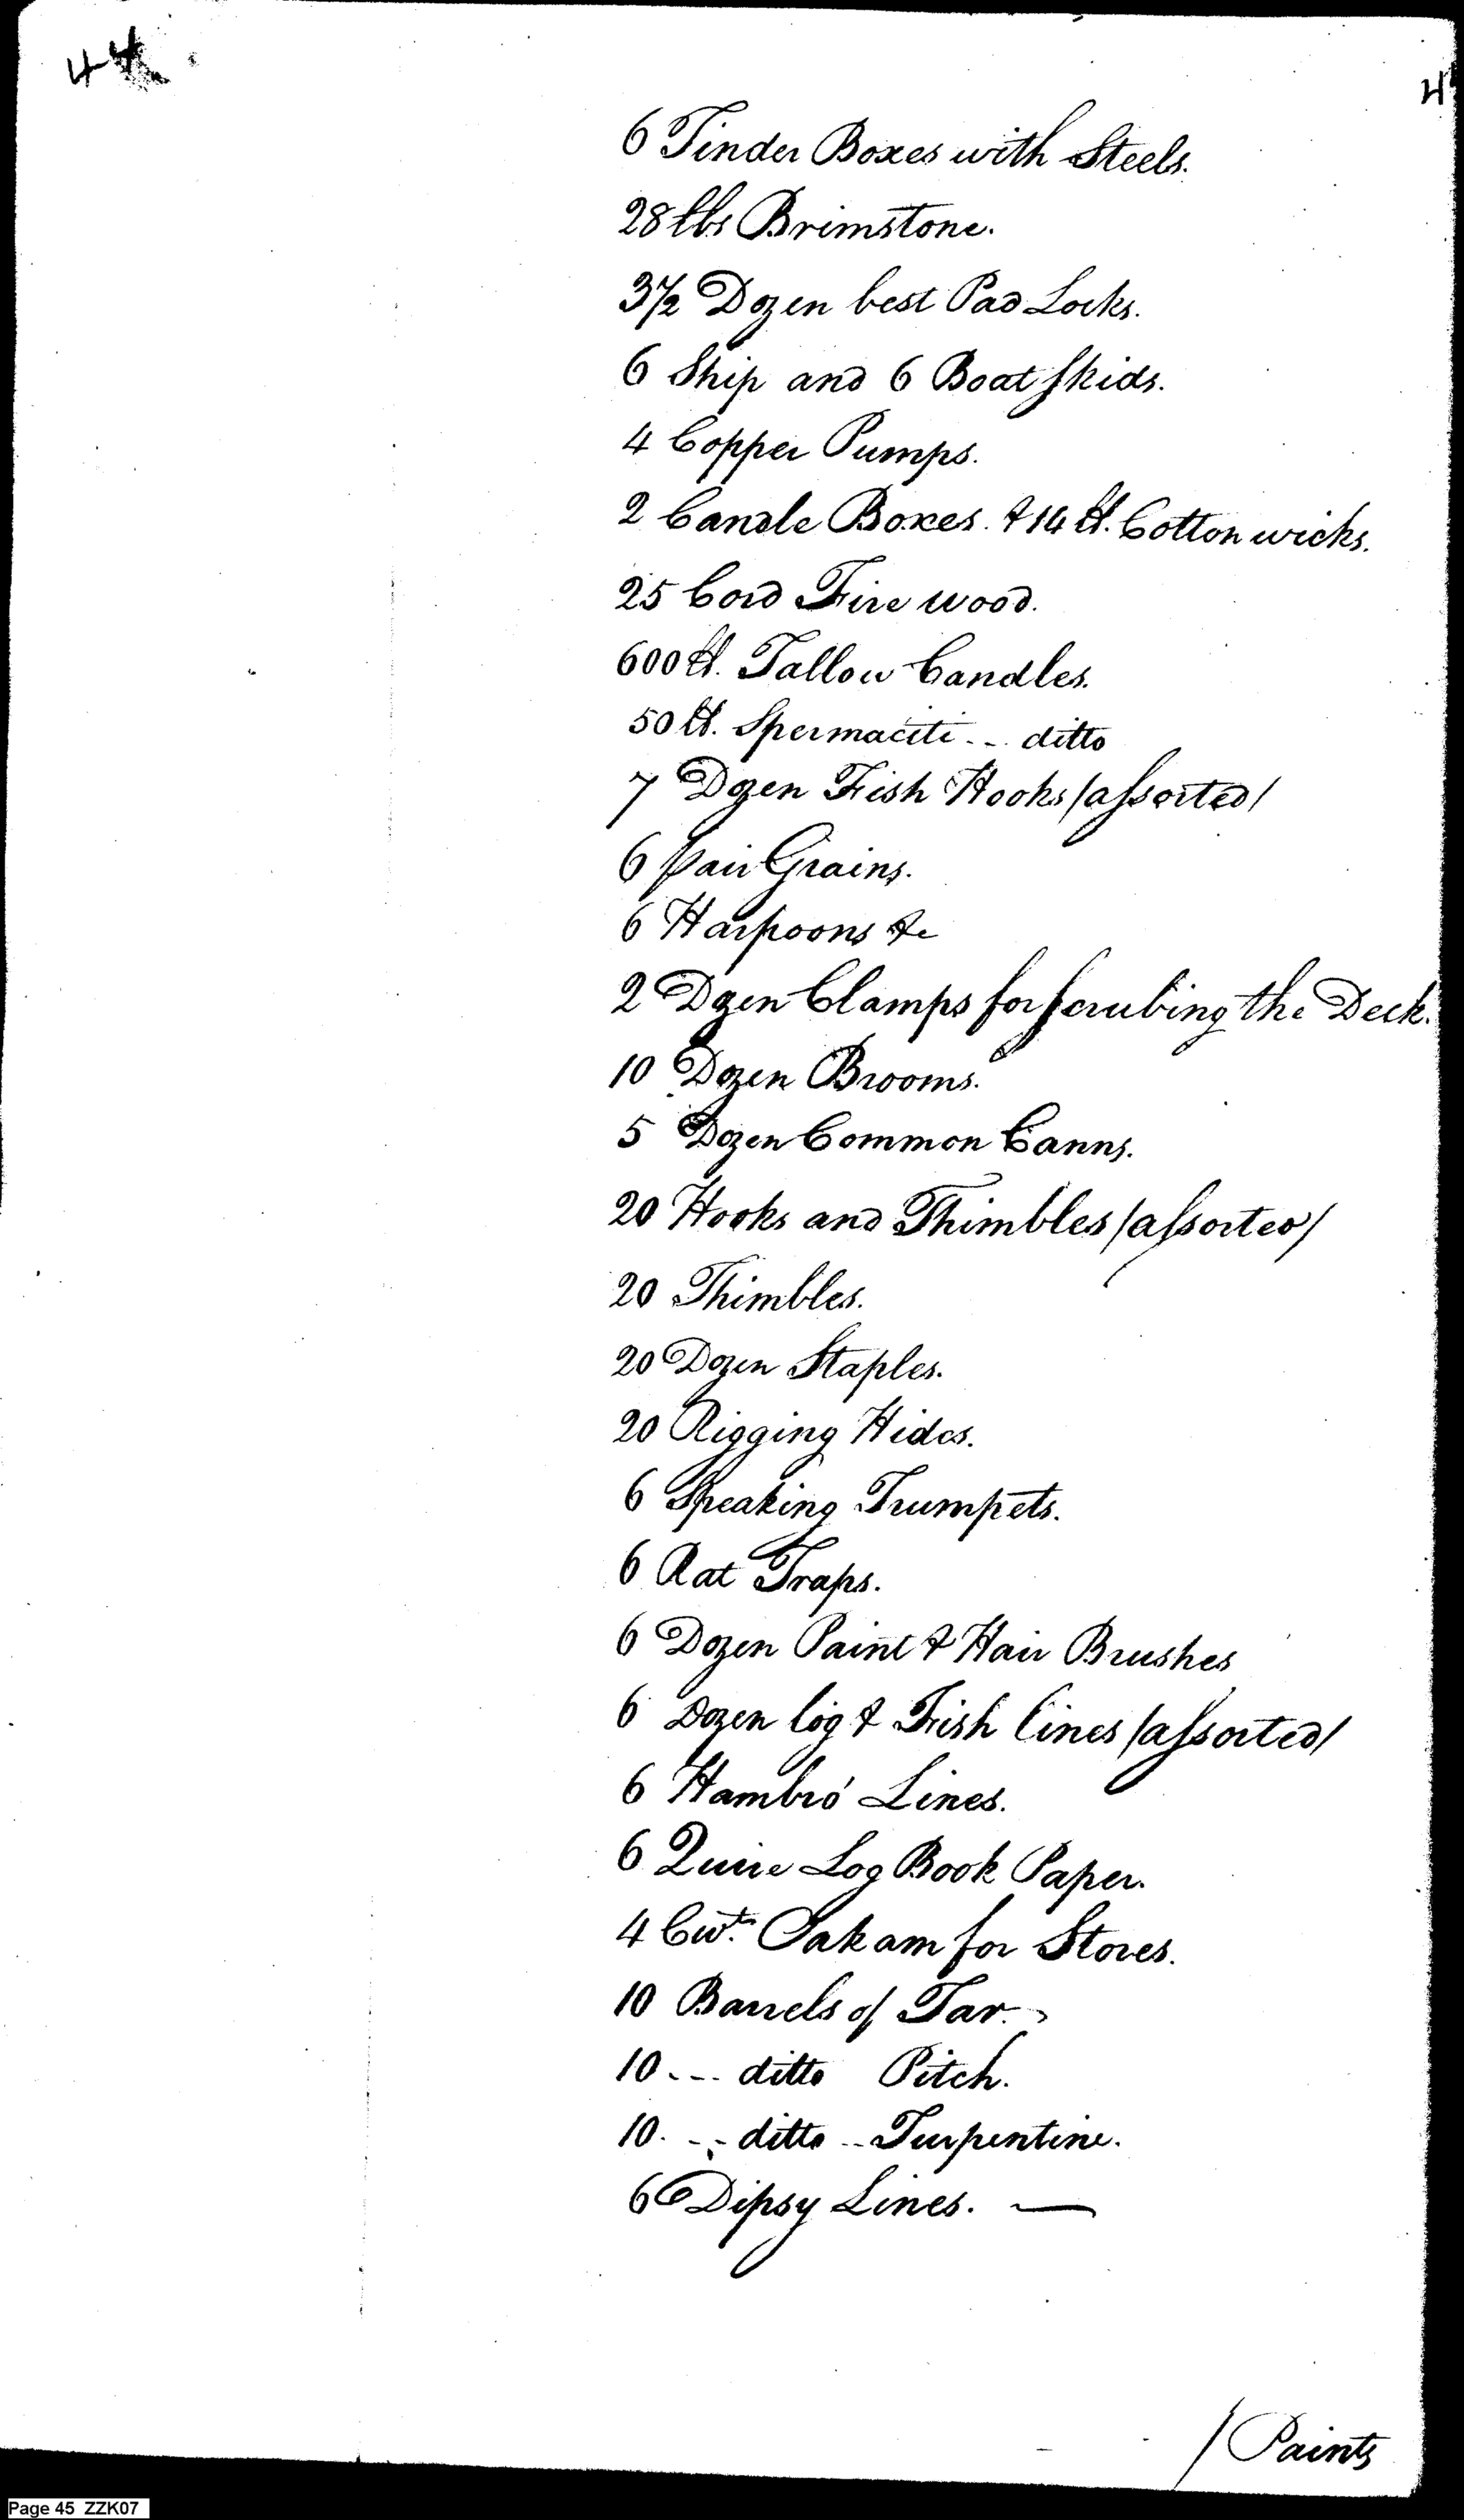 44
4
6 Tinder Boxes with Steels.
28 lbs Brimstone.
3½ Dozen best Pad Locks.
6 Ship and 6 Boat Skids.
4 Copper Pumps.
2 Candle Boxes. & 14 lb. Cotton wicks.
25 Cord Fire wood.
600 lb. Tallow Candles.
50 lb. Spermaciti -- ditto
7 Dozen Fish Hooks /assorted/
6 pair Grains.
6 Harpoons &c
2 Dozen Clamps for scrubing the Deck.
10 Dozen Brooms.
5 Dozen Common Canns.
20 Hooks and Thimbles /assorted/
20 Thimbles.
20 Dozen Staples.
20 Rigging Hides.
6 Speaking Trumpets.
6 Rat Traps.
6 Dozen Paint & Hair Brushes
6 Dozen log & Fish lines /assorted/
6 Hambro' Lines.
6 Quire Log Book Paper.
4 Cwt. Oakam for Stores.
10 Barrels of Tar.
10 --- ditto Pitch.
10. -- ditto -- Turpentine.
6 Dipsy Lines. —
/Paints
Page 45 ZZK07